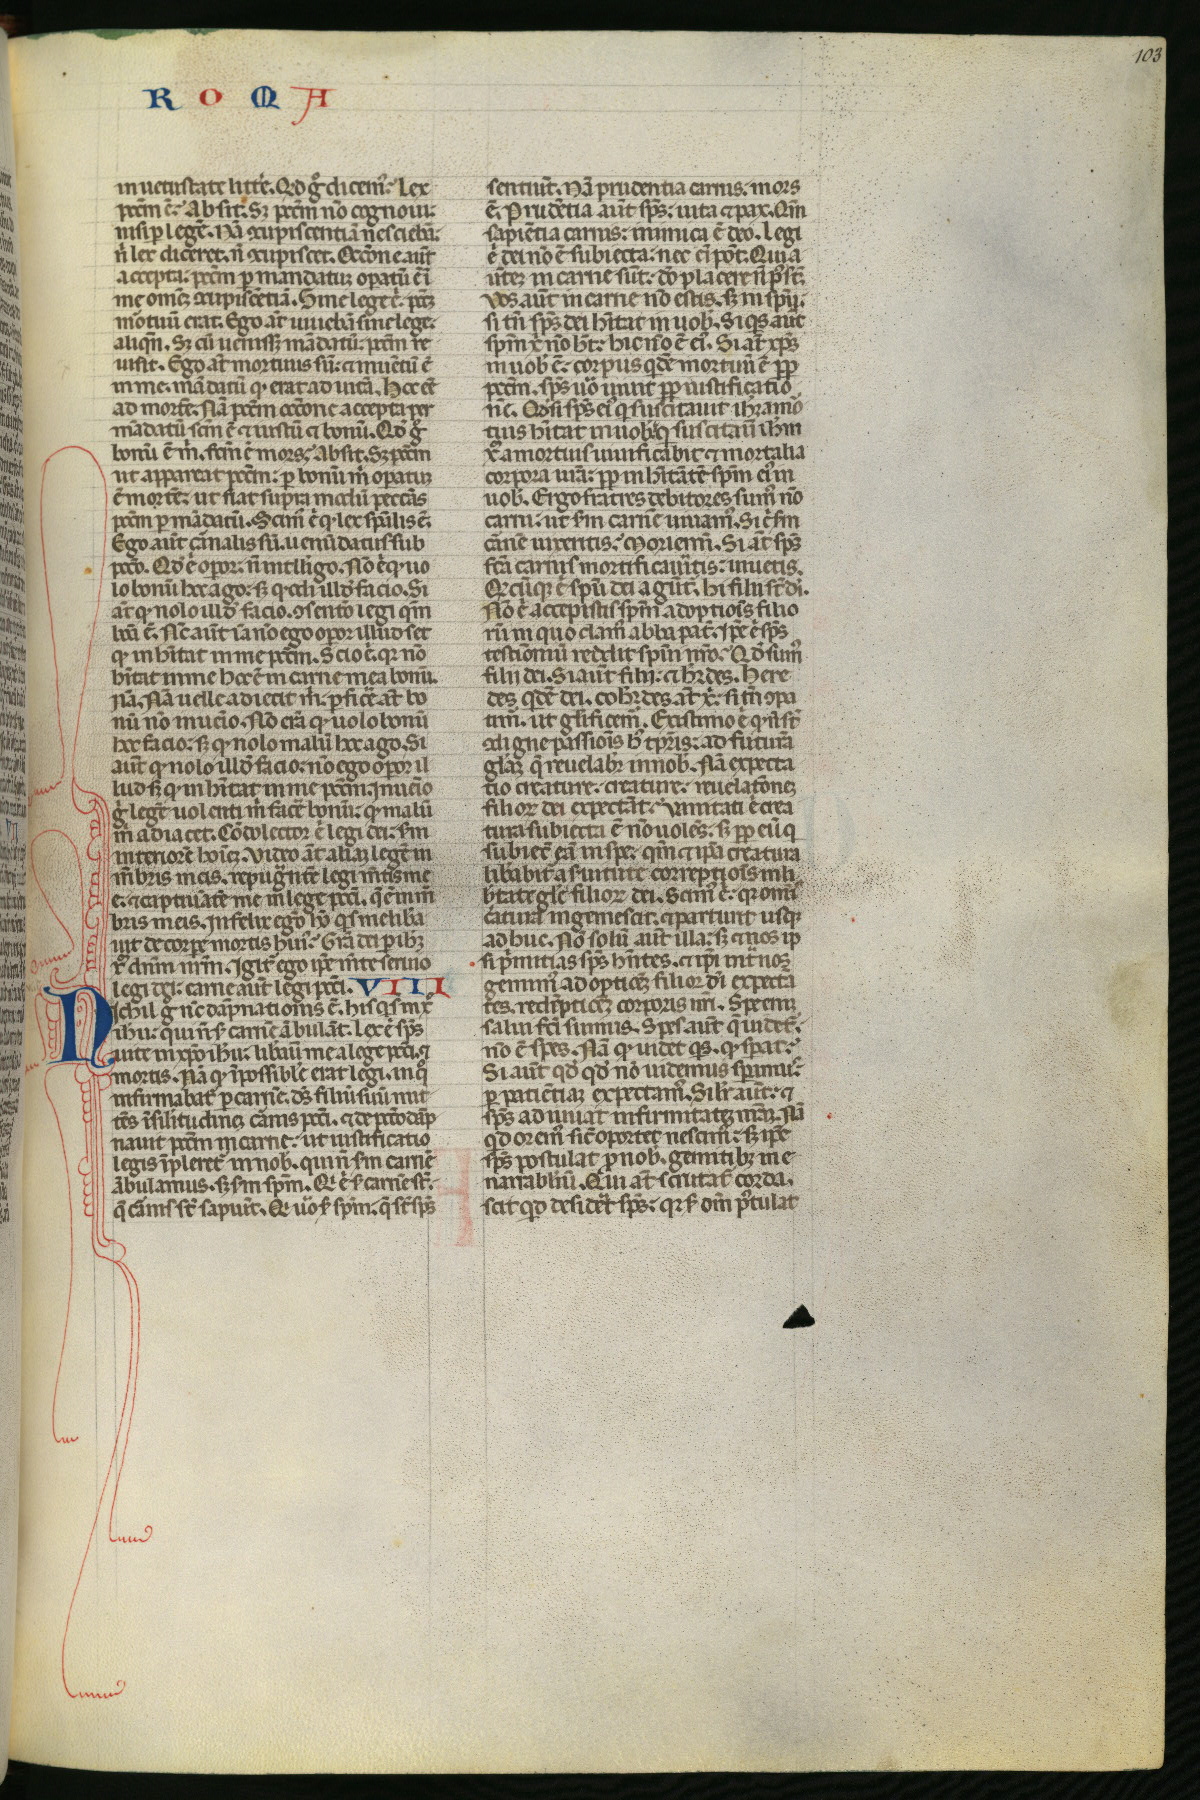 103
R O M A
in uetustate litte͛. Qđ g̊ dicem᷒. Lex
pcc̄m ē. Absit. Sꝫ pcc̄m nō cognoui:
nisi ꝑ legē. Nā ꝯcupiscentiā nesciebā:
n̄ lex diceret. n̄ ꝯcupisces. Occōne aūt
accepta: pcc̄m ꝑ mandatuꝫ oꝑatū ē ī
me omēꝫ ꝯcupiscētiā. Sine lege .n. pcc̄ꝫ
mortuū erat. Ego aūt uiuebā sine lege:
aliqn̄. Sꝫ cū uenissꝫ mādatū: pcc̄m re
uixit. Ego aūt mortuus sū: ⁊ inuētū ē
in me: mādatū qꝫ erat ad uitā. hoc eē
ad mortē. Nā pcc̄m occōne accepta per
mādatū scm̄ ē ⁊ iustū ⁊ bonū. Qđ g̊
bonū ē m̄. fcm̄ ē mors: Absit. Sꝫ pcc̄m
ut appareat pcc̄m: ꝑ bonū m̄ oꝑatuꝫ
ē mortē: ut fiat supra modū peccās
pcc̄m ꝑ mādatū. Scim᷒ .n. qꝫ lex spūlis ē:
Ego aūt carnalis sū. uenūdatus sub
pcc̄o. Qđ .n. oꝑor: n̄ intlligo. Nō .n. qꝫ uo
lo bonū hoc ago: sꝫ qꝫ odi illđ facio. Si
aūt qꝫ nolo illđ facio. ꝯsentio legi qm̄
bōa ē. Nūc aūt iā nō ego oꝑor illud set
qꝫ inhītat in me pcc̄m. Scio .n. qꝫ nō
hītat in me hoc ē in carne mea bonū.
Nā. Nā uelle adiecit m̄. ꝑficē aūt bo
nū nō inuēio. Nō enī qꝫ uolo bonū
hoc facio: sꝫ qꝫ nolo malū hoc ago. Si
aūt qꝫ nolo illđ facio: nō ego oꝑor il
lud sꝫ qꝫ inhītat in me pcc̄m. Inuēio
g̊ legē uolenti m̄ facē bonū: qꝫ malū
m̄ adiacet. Cōdelector .n. legi dei: s̄m
interiorē hoīeꝫ. Video aūt aliaꝫ legē in
mēbris meis. repugn̄tē legi mētis me
e. ⁊ captiuātē me in lege pcc̄i. q̄ ē in mē
bris meis. Infelix ego hō qͥs me liba
uit de corpe mortis hui᷒: Gr̄a dei ꝑ ihꝫ
xp̄ dn̄m nrm̄. Igit᷑ ego ipē mēte seruio
legi dei: carne aūt legi pcc̄i. VIII
Nichil g̊ nc̄ dāpnationis ē. his qͥ s̄t in xp̄
ihū: qui n̄ s̄ carnē ābulāt. Lex .n. sp̄s
uite in xp̄o ihū: libauit me a lege pcc̄i. ⁊
mortis. Nā qꝫ īpossibile erat legi. in q̄
infirmabat᷑ ꝑ carnē. ds̄ filiū suū mit
tēs ī silitudineꝫ carnis pcc̄i. ⁊ de pcc̄o dāp
nauit pcc̄m in carne: ut iustificatio
legis īpleret᷑ in nob. qui n̄ s̄m carnē
ābulamus. sꝫ s̄m sp̄m. Qͥ .n. s̄ carnē s̄t:
q̄ carnis s̄t sapiūt. Qͥ uͦ s̄ sp̄m. q̄ s̄t sp̄s
sentiūt. Nā prudentia carnis: mors
ē. Prudētia aūt sp̄s: uita ⁊ pax. Qm̄
sapiētia carnis: inimica ē deo. Legi
.n. dei nō ē subiecta: nec .n. pōt. Qui a
ūteꝫ in carne sūt: dō placere n̄ pn̄t.
Vos aūt in carne nō estis. sꝫ in sp̄u.
si tn̄ sp̄s dei hītat in uob. Si qͥs aūt
sp̄m x̄ nō ht̄: hic nō ē ei᷒. Si aūt xp̄s
in uob ē: corpus qͥdē mortuū ē ꝓp
pcc̄m. sp̄s uͦ uiuit ꝓp iustificatio
nē. Qđ si sp̄s ei᷒ q̄ suscitauit ihm a mo
tuis hītat in uob: q̄ suscitauit ihm
x̄ a mortuis uiuificabit ⁊ mortalia
corpora uīa: ꝓp inhītātē sp̄m ei᷒ in
uob. Ergo fratres debitores sum᷒ nō
carni: ut s̄m carnē uiuam᷒. Si .n. s̄m
carnē uixeritis: Moriemī. Si aūt sp̄s
fcā carnis mortificaūitis: uiuetis.
Qͥcūqꝫ .n. sp̄u dei agūt᷑. hi filii s̄t di.
Nō .n. accepistis sp̄m adoptiōis filio
rū in quo clam̄ abba pat᷑. Ipē .n. sp̄s
testīoniū reddit sp̄ui nr̄o: Qđ sum᷒
filii dei. Si aūt filii: ⁊ hr̄des. Here
des qͥdē dei. cohr̄des aūt x̄. si tn̄ ꝯpa
timr̄. ut glīficem᷒. Existimo .n. qꝫ n̄ s̄t
ꝯdigne passiōis h᷒ tp̄ris: ad futurā
glaꝫ q̄ reuelabit᷑ in nob. Nā expecta
tio creature: creature: reuelatōneꝫ
filioꝝ dei expectāt: Vanitati .n. crea
tura subiecta ē nō uolēs. sꝫ ꝓp eū q̄
subiec̄ eā in spe: qm̄ ⁊ ipā creatura
libabit᷑ a s̄uitute correptiōis in li
btatē gl̄e filioꝝ dei. Scim᷒ .n. qꝫ omīs
catura ingemescit: ⁊ parturit usqꝫ
adhuc. Nō solū aūt illa: sꝫ ⁊ nos ip
si pͥmitias sp̄s hn̄tes. ⁊ ip̄i int᷑ noꝫ
gemim᷒ adoptōeꝫ filioꝝ di expectā
tes. redēptiōeꝫ corporis nr̄i. Spe eniꝫ
salui fc̄i sumus. Spes aūt q̄ uidet᷑:
nō ē spes. Nā qꝫ uidet qͥs. qꝫ sꝑat:
Si aūt qđ qđ nō uidemus sꝑamus:
ꝑ patiētiaꝫ expectam᷒. Silir̄ aūt: ⁊
sp̄s adiuuat infirmitateꝫ nrāꝫ. Nā
qđ orem᷒ sic̄ oportet nescim᷒: sꝫ ipē
sp̄s postulat ꝓ nob. gemitibꝫ ine
narrabilibꝫ. Qui aūt scrutat᷑ corda.
scit qđ desidet sp̄s: qꝫ s̄ dm̄ postulat